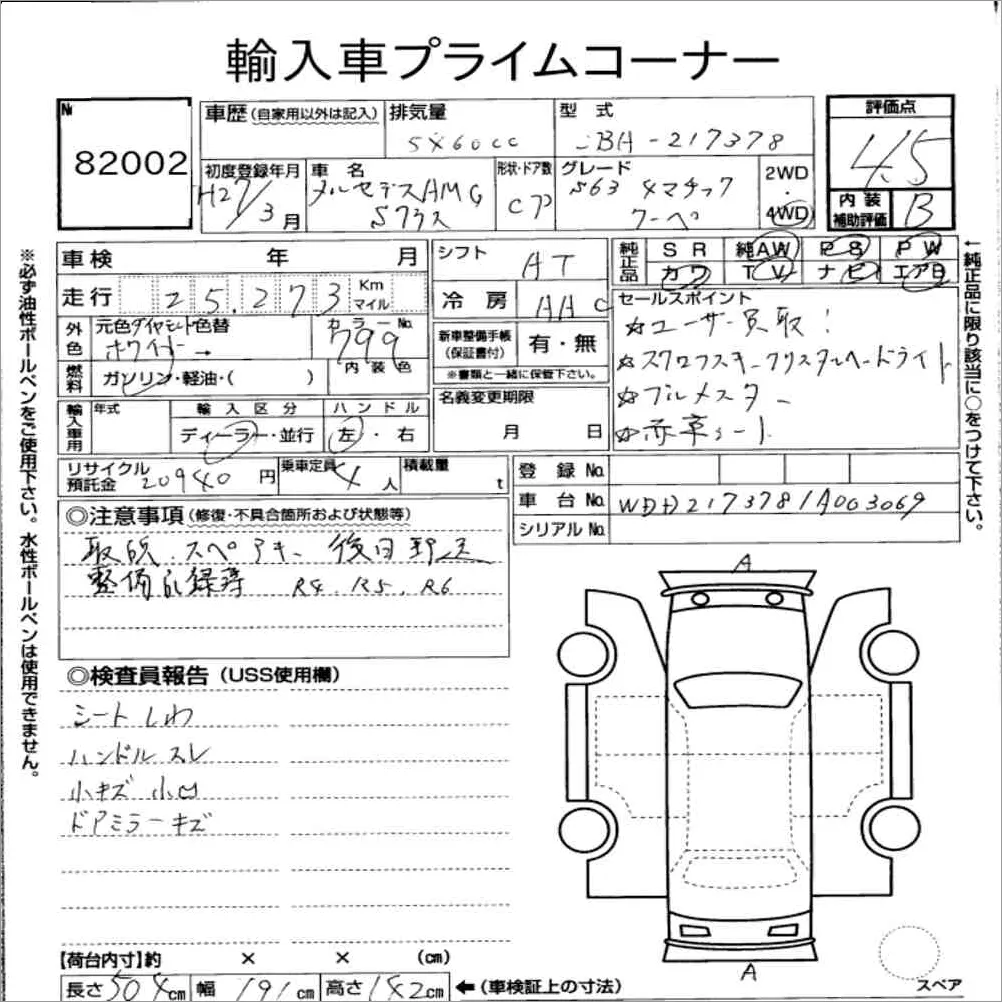 輸入車プライムコーナー
№ 82002
車歴(自家用以外は記入) 排気量 5460cc 型式 CBA-217378 評価点 4.5
初度登録年月 H27/3月 車名 メルセデスAMG Sクラス 形状・ドア数 CP グレード S63 4マチック クーペ 2WD・4WD 内装補助評価 B
車検 年 月 シフト AT 純正品 SR 純AW PS PW
カワ TV ナビ エアB
走行 25,273 Km マイル 冷房 AAC
セールスポイント
☆ユーザー買取!
☆スワロフスキークリスタルヘードライト
☆ブルメスター
☆赤革シート
外色 元色 ダイヤモンドホワイト 色替 → カラーNo. 799
内装色
新車整備手帳(保証書付) 有・無
※書類と一緒に保管下さい。
燃料 ガソリン・軽油・( )
名義変更期限 月 日
輸入車用 年式 輸入区分 ディーラー・並行 ハンドル 左・右
リサイクル預託金 20940円 乗車定員 4人 積載量 t
登録No.
車台No. WDD2173781A003069
シリアルNo.
◎注意事項(修復・不具合箇所および状態等)
取説.スペアキー 後日郵送
整備記録簿 R4.R5.R6
◎検査員報告(USS使用欄)
シートしわ
ハンドルスレ
小キズ 小凹
ドアミラーキズ
A
A
【荷台内寸】約 × × (cm)
長さ504cm 幅191cm 高さ142cm ←(車検証上の寸法)
スペア
※必ず油性ボールペンをご使用下さい。水性ボールペンは使用できません。
←純正品に限り該当に○をつけて下さい。